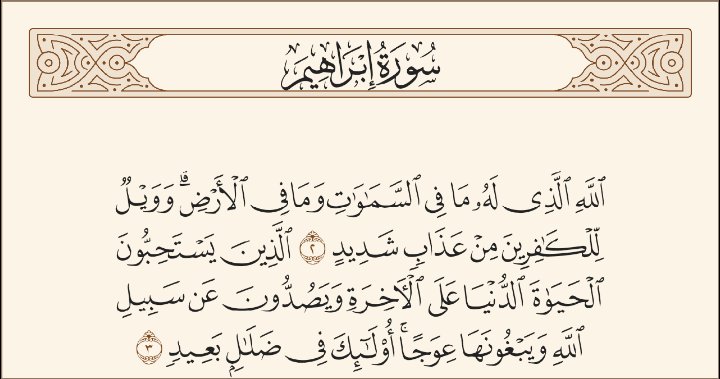 سُورَةُ إِبْرَاهِيمَ
ٱللَّهِ ٱلَّذِى لَهُۥ مَا فِى ٱلسَّمَـٰوَٰتِ وَمَا فِى ٱلْأَرْضِ ۗ وَوَيْلٌ
لِّلْكَـٰفِرِينَ مِنْ عَذَابٍ شَدِيدٍ ٢ ٱلَّذِينَ يَسْتَحِبُّونَ
ٱلْحَيَوٰةَ ٱلدُّنْيَا عَلَى ٱلْـَٔاخِرَةِ وَيَصُدُّونَ عَن سَبِيلِ
ٱللَّهِ وَيَبْغُونَهَا عِوَجًا ۚ أُو۟لَـٰٓئِكَ فِى ضَلَـٰلٍۭ بَعِيدٍ ٣